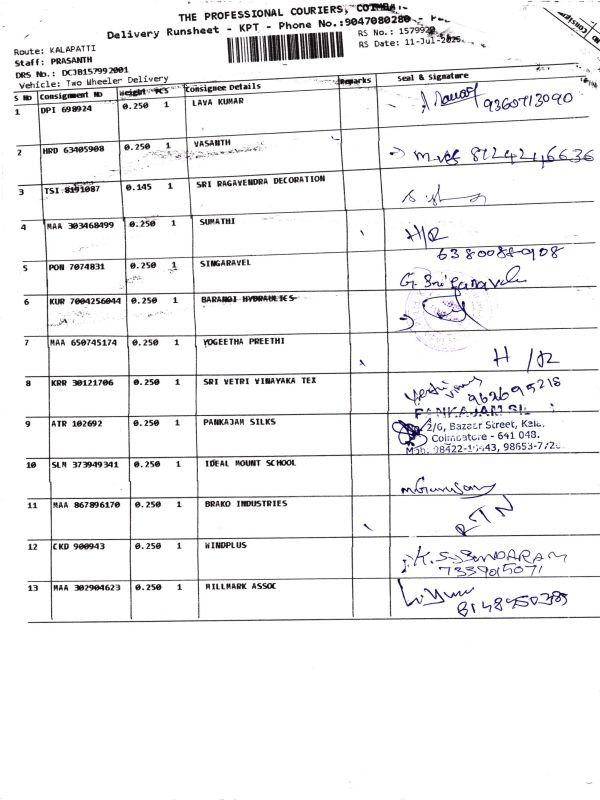 THE PROFESSIONAL COURIERS,
Delivery Runsheet - KPT - Phone No.:9047080280
Route: KALAPATTI
RS No.: 1579920
Staff: PRASANTH
RS Date: 11-Jul-2025
DRS No.: DCJB157992001
Vehicle: Two Wheeler Delivery
S No Consignment No Weight PCS Consignee Details Remarks Seal & Signature
1 DPI 698924 0.250 1 LAVA KUMAR 9360713090
2 HRD 63405908 0.250 1 VASANTH
3 TSI 8191087 0.145 1 SRI RAGAVENDRA DECORATION
4 MAA 303468499 0.250 1 SUMATHI H/R
5 PON 7074831 0.250 1 SINGARAVEL
6 KUR 7004256044 0.250 1 BARANOI HYDRAULICS
7 MAA 650745174 1 YOGEETHA PREETHI H/R
8 KRR 30121706 0.250 1 SRI VETRI VINAYAKA TEX 9626795218
9 ATR 102692 0.250 1 PANKAJAM SILKS
PANKAJAM SIL
2/6, Bazaar Street, Kala.
Coimbatore - 641 048.
10 SLM 373949341 0.250 1 IDEAL MOUNT SCHOOL
11 MAA 867896170 0.250 1 BRAKO INDUSTRIES RTN
12 CKD 900943 0.250 1 WINDPLUS K. SUBUNDARAM
7339015071
13 MAA 302904623 0.250 1 MILLMARK ASSOC